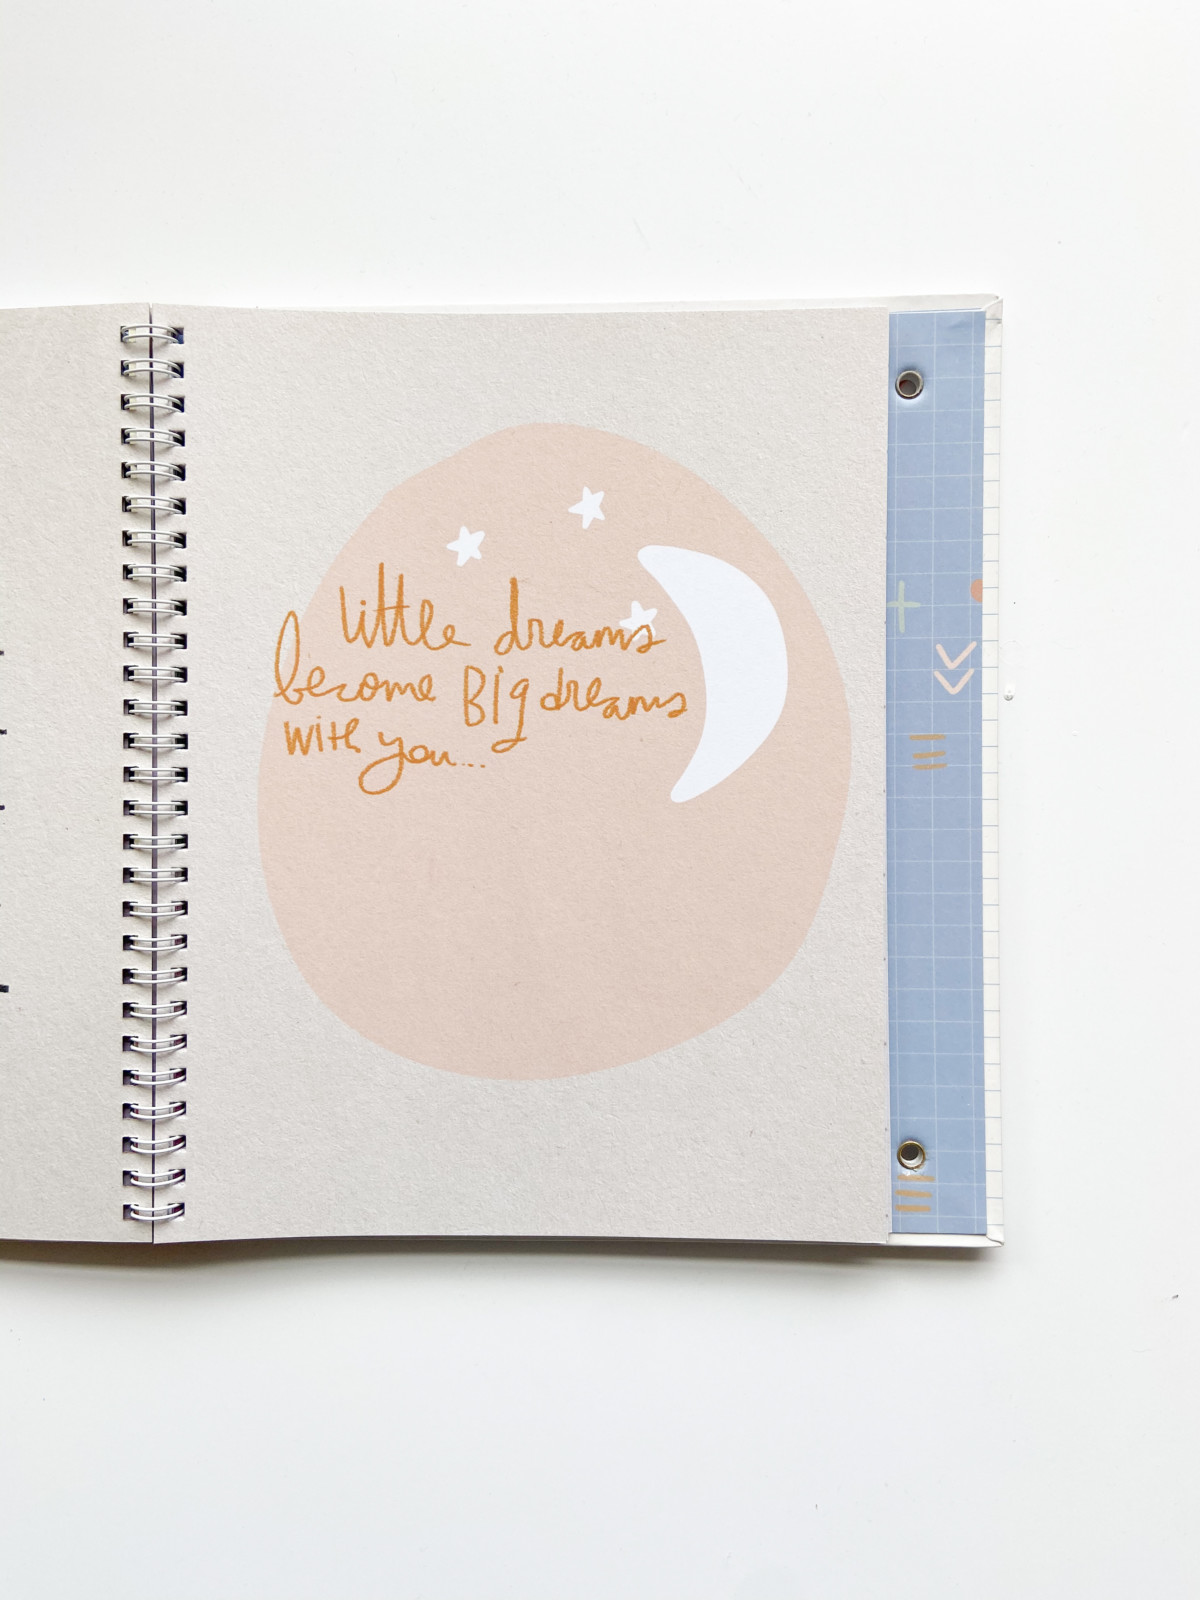 little dreams
become Big dreams
with you...